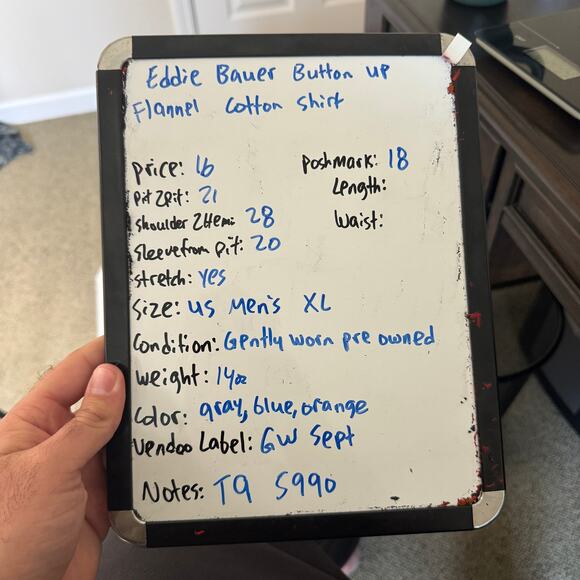 Eddie Bauer Button up
Flannel Cotton Shirt
price: 16
Poshmark: 18
pit 2 pit: 21
Length:
Shoulder 2 Hem: 28
Waist:
Sleeve from pit: 20
stretch: yes
Size: US Men's XL
Condition: Gently worn pre owned
Weight: 14oz
Color: gray, blue, orange
Vendoo Label: GW Sept
Notes: T9 S990